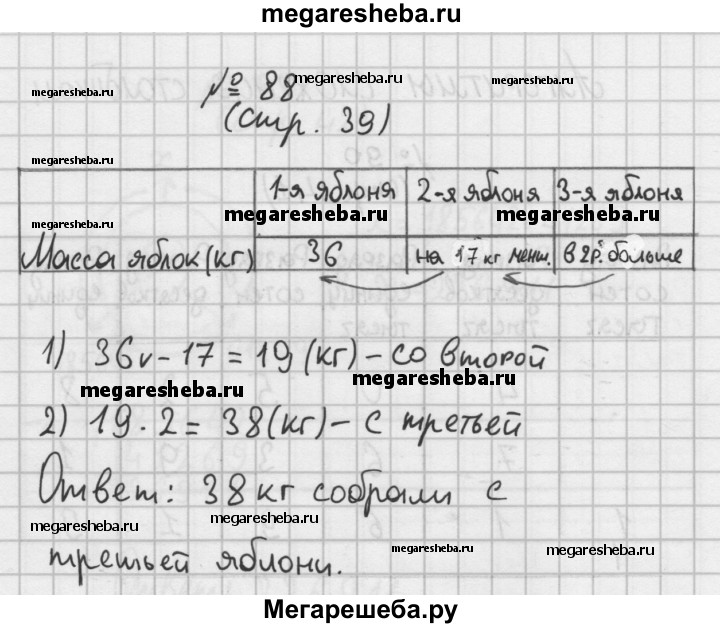 megaresheba.ru
№ 88 megaresheba.ru
megaresheba.ru megaresheba.ru
(стр. 39)
megaresheba.ru
1-я яблоня 2-я яблоня 3-я яблоня
megaresheba.ru megaresheba.ru
megaresheba.ru
Масса яблок (кг) 36 на 17 кг менш. в 2 р. больше
1) 36 - 17 = 19 (кг) - со второй
megaresheba.ru megaresheba.ru
2) 19 · 2 = 38 (кг) - с третьей
Ответ: 38 кг собрали с
megaresheba.ru megaresheba.ru megaresheba.ru megaresheba.ru
третьей яблони.
Мегарешеба.ру